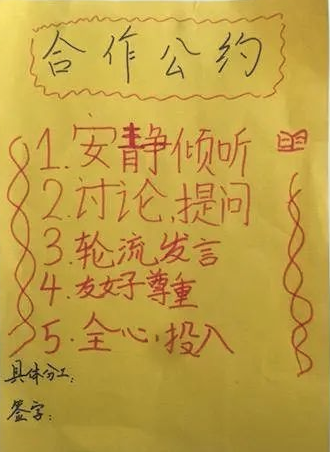 合作公约
1.安静倾听
2.讨论,提问
3.轮流发言
4.友好尊重
5.全心,投入
具体分工:
签字: